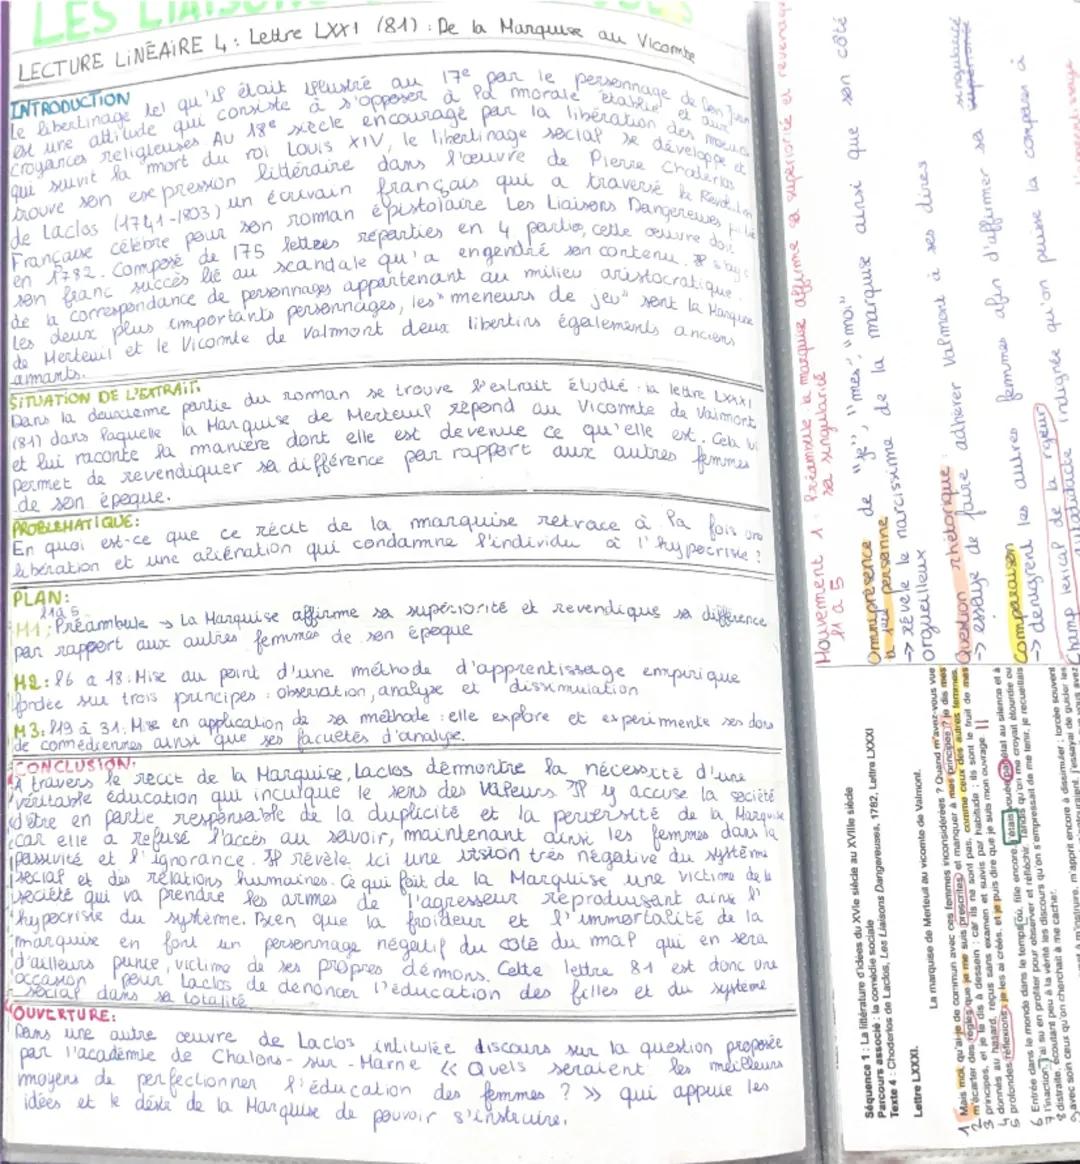 LES LIAISONS
LECTURE LINÉAIRE 4 : Lettre LXXI (81) : De la Marquise au Vicomte
INTRODUCTION
Le libertinage tel qu'il était illustré au 17e par le personnage de Don Juan
est une attitude qui consiste à s'opposer à la morale établie et aux
croyances religieuses. Au 18e siècle encouragé par la libération des moeurs
qui suivit la mort du roi Louis XIV, le libertinage social se développe et
trouve son expression littéraire dans l'œuvre de Pierre Choderlos
de Laclos (1741-1803) un écrivain français qui a traversé la Révolution
Française célèbre pour son roman épistolaire Les Liaisons Dangereuses
en 1782. Composé de 175 lettres réparties en 4 parties, cette œuvre doit
son franc succès lié au scandale qu'a engendré son contenu. Il s'agit
de la correspondance de personnages appartenant au milieu aristocratique.
Les deux plus importants personnages, les "meneurs de jeu" sont la Marquise
de Merteuil et le Vicomte de Valmont deux libertins égalements anciens
amants.
SITUATION DE L'EXTRAIT:
Dans la deuxième partie du roman se trouve l'extrait étudié : la lettre LXXXI
(81) dans laquelle la Marquise de Merteuil répond au Vicomte de Valmont
et lui raconte la manière dont elle est devenue ce qu'elle est. Cela lui
permet de revendiquer sa différence par rapport aux autres femmes
de son époque.
PROBLÉMATIQUE:
En quoi est-ce que ce récit de la marquise retrace à la fois une
libération et une aliénation qui condamne l'individu à l'hypocrisie ?
PLAN:
l1 à 5
M1 : Préambule → La Marquise affirme sa supériorité et revendique sa différence
par rapport aux autres femmes de son époque
M2 : l6 à 18 : Mise au point d'une méthode d'apprentissage empirique
fondée sur trois principes : observation, analyse et dissimulation
M3 : l19 à 31. Mise en application de sa méthode : elle explore et expérimente ses dons
de comédiennes ainsi que ses facultés d'analyse.
CONCLUSION:
A travers le récit de la Marquise, Laclos démontre la nécessité d'une
véritable éducation qui inculque le sens des valeurs. Il y accuse la société
d'être en partie responsable de la duplicité et la perversité de la Marquise
car elle a refusé l'accès au savoir, maintenant ainsi les femmes dans la
passivité et l'ignorance. Il révèle ici une vision très négative du système
social et des relations humaines. Ce qui fait de la Marquise une victime de la
société qui va prendre les armes de l'agresseur reproduisant ainsi l'
hypocrisie du système. Bien que la froideur et l'immortalité de la
marquise en font un personnage négatif du côté du mal qui en sera
d'ailleurs punie, victime de ses propres démons. Cette lettre 81 est donc une
occasion pour Laclos de dénoncer l'éducation des filles et du système
social dans sa totalité
OUVERTURE:
Dans une autre œuvre de Laclos intitulée discours sur la question proposée
par l'académie de Chalons-sur-Marne « Quels seraient les meilleurs
moyens de perfectionner l'éducation des femmes ? » qui appuie les
idées et le désir de la Marquise de pouvoir s'instruire.
Mouvement 1 : Préambule : la marquise affirme sa supériorité et revendique
l1 à 5 sa singularité
Omniprésence de "je", "mes", "moi"
la 1ère personne
→ révèle le narcissisme de la marquise ainsi que son côté
orgueilleux
Question rhétorique :
→ essaye de faire adhérer Valmont à ses dires
Comparaison
→ dénigrent les autres femmes afin d'affirmer sa singularité
Champ lexical de la rigueur
indignée qu'on puisse la comparer à
Séquence 1 : La littérature d'idées du XVIe siècle au XVIIIe siècle
Parcours associé : la comédie sociale
Texte 4 : Choderlos de Laclos, Les Liaisons Dangereuses, 1782, Lettre LXXXI
Lettre LXXXI.
La marquise de Merteuil au vicomte de Valmont.
1 Mais moi, qu'ai-je de commun avec ces femmes inconsidérées ? Quand m'avez-vous vue
2 m'écarter des règles que je me suis prescrites, et manquer à mes principes ? je dis mes
3 principes, et je le dis à dessein : car ils ne sont pas, comme ceux des autres femmes,
4 donnés au hasard, reçus sans examen et suivis par habitude ; ils sont le fruit de mes
5 profondes réflexions ; je les ai créés, et je puis dire que je suis mon ouvrage.
6 Entrée dans le monde dans le temps où, fille encore, j'étais vouée par état au silence et à
7 l'inaction, j'ai su en profiter pour observer et réfléchir. Tandis qu'on me croyait étourdie ou
8 distraite, écoutant peu à la vérité les discours qu'on s'empressait de me tenir, je recueillais
9 avec soin ceux qu'on cherchait à me cacher.